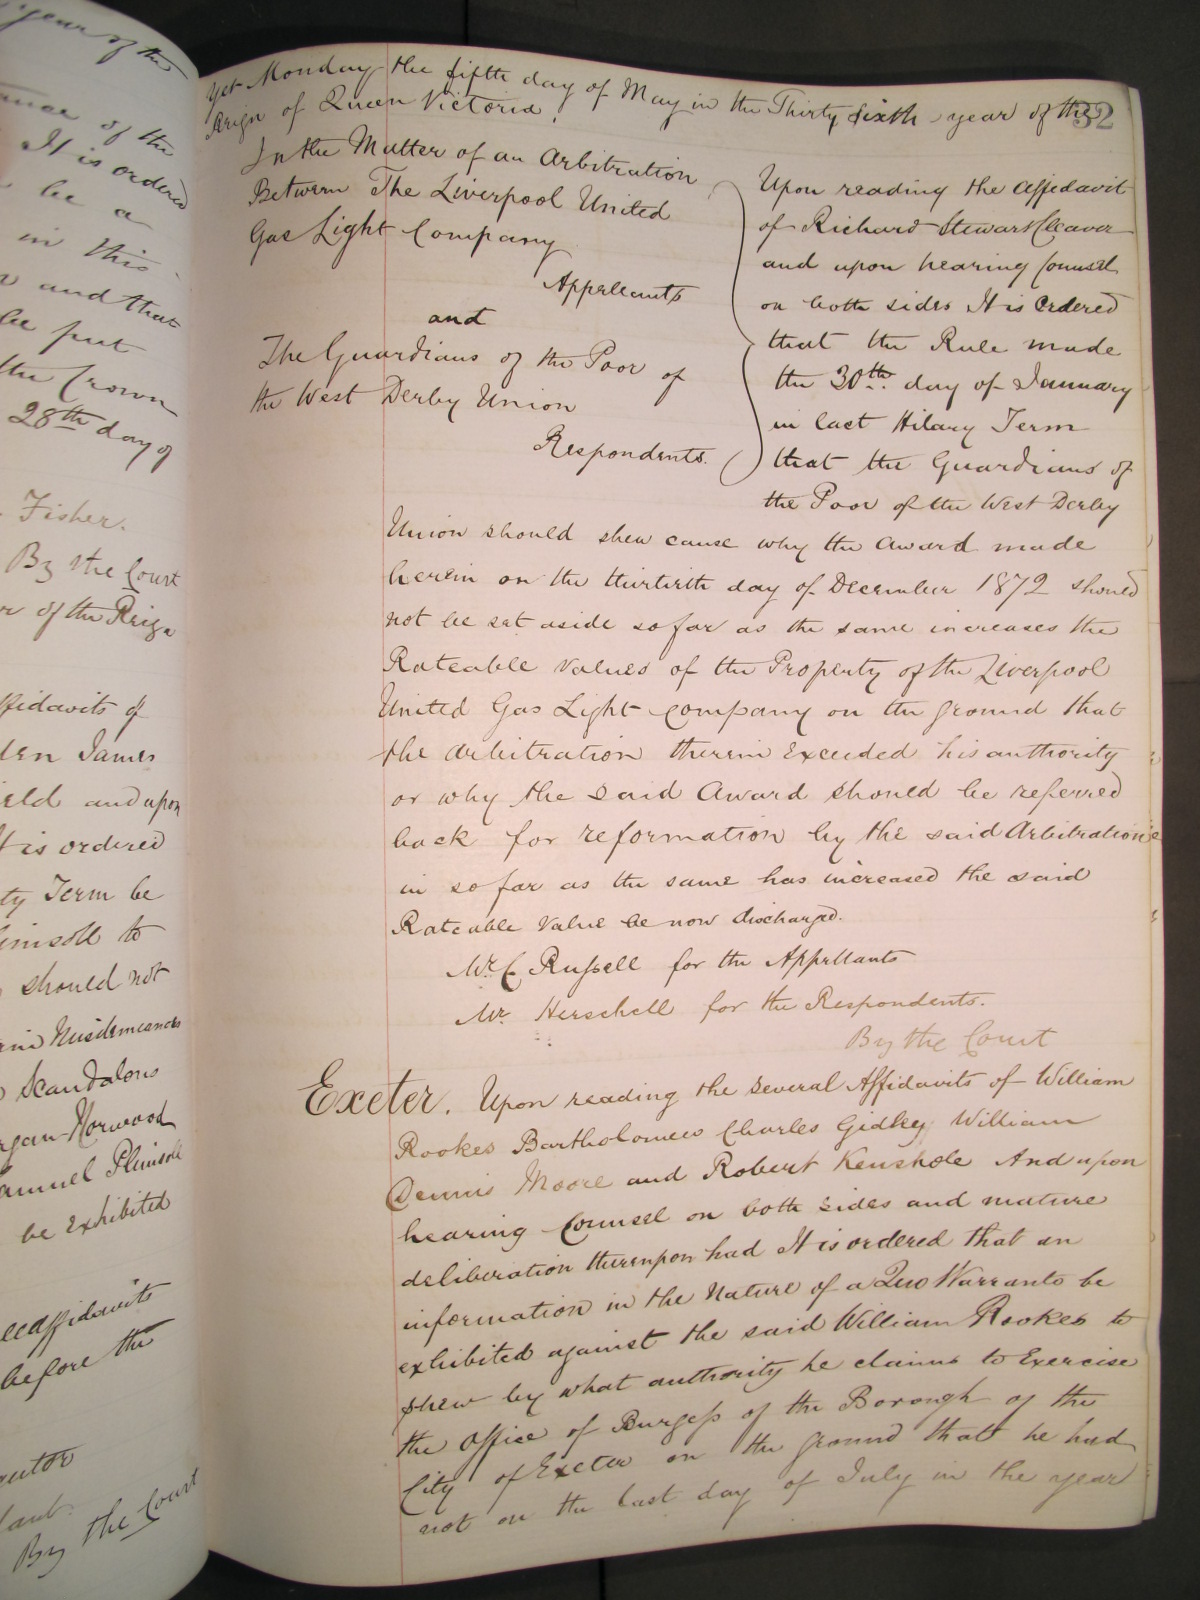 year of the
of the
It is ordered
be a
in this
and that
be put
the Crown
28th day of
Fisher.
By the Court
of the Reign
ffidavits of
James
and upon
t is ordered
Term be
to
should not
Misdemeanors
Scandalous
Norwood
amuel Plimsoll
be Exhibited
affidavits
before the
By the Court
32
Yet Monday the fifth day of May in the Thirty sixth year of the
Reign of Queen Victoria.
In the Matter of an Arbitration
Between The Liverpool United
Gas Light Company
Appellants
and
The Guardians of the Poor of
the West Derby Union
Respondents.
Upon reading the Affidavit
of Richard Stewart Cleaver
and upon hearing Counsel
on both sides It is Ordered
that the Rule made
the 30th day of January
in last Hilary Term
that the Guardians of
the Poor of the West Derby
Union should shew cause why the Award made
herein on the thirtieth day of December 1872 should
not be set aside so far as the same increases the
Rateable Values of the Property of the Liverpool
United Gas Light Company on the ground that
the Arbitration therein Exceeded his authority
or why the said Award should be referred
back for reformation by the said Arbitration
in so far as the same has increased the said
Rateable Value be now discharged.
Mr. C Russell for the Appellants
Mr. Herschell for the Respondents.
By the Court
Exeter. Upon reading the several Affidavits of William
Rookes Bartholomew Charles Gidley William
Dennis Moore and Robert Kenshole And upon
hearing Counsel on both sides and mature
deliberation thereupon had It is ordered that an
information in the Nature of a Quo Warranto be
exhibited against the said William Rookes to
shew by what authority he claims to Exercise
the Office of Burgess of the Borough of the
City of Exeter on the ground that he had
not on the last day of July in the year